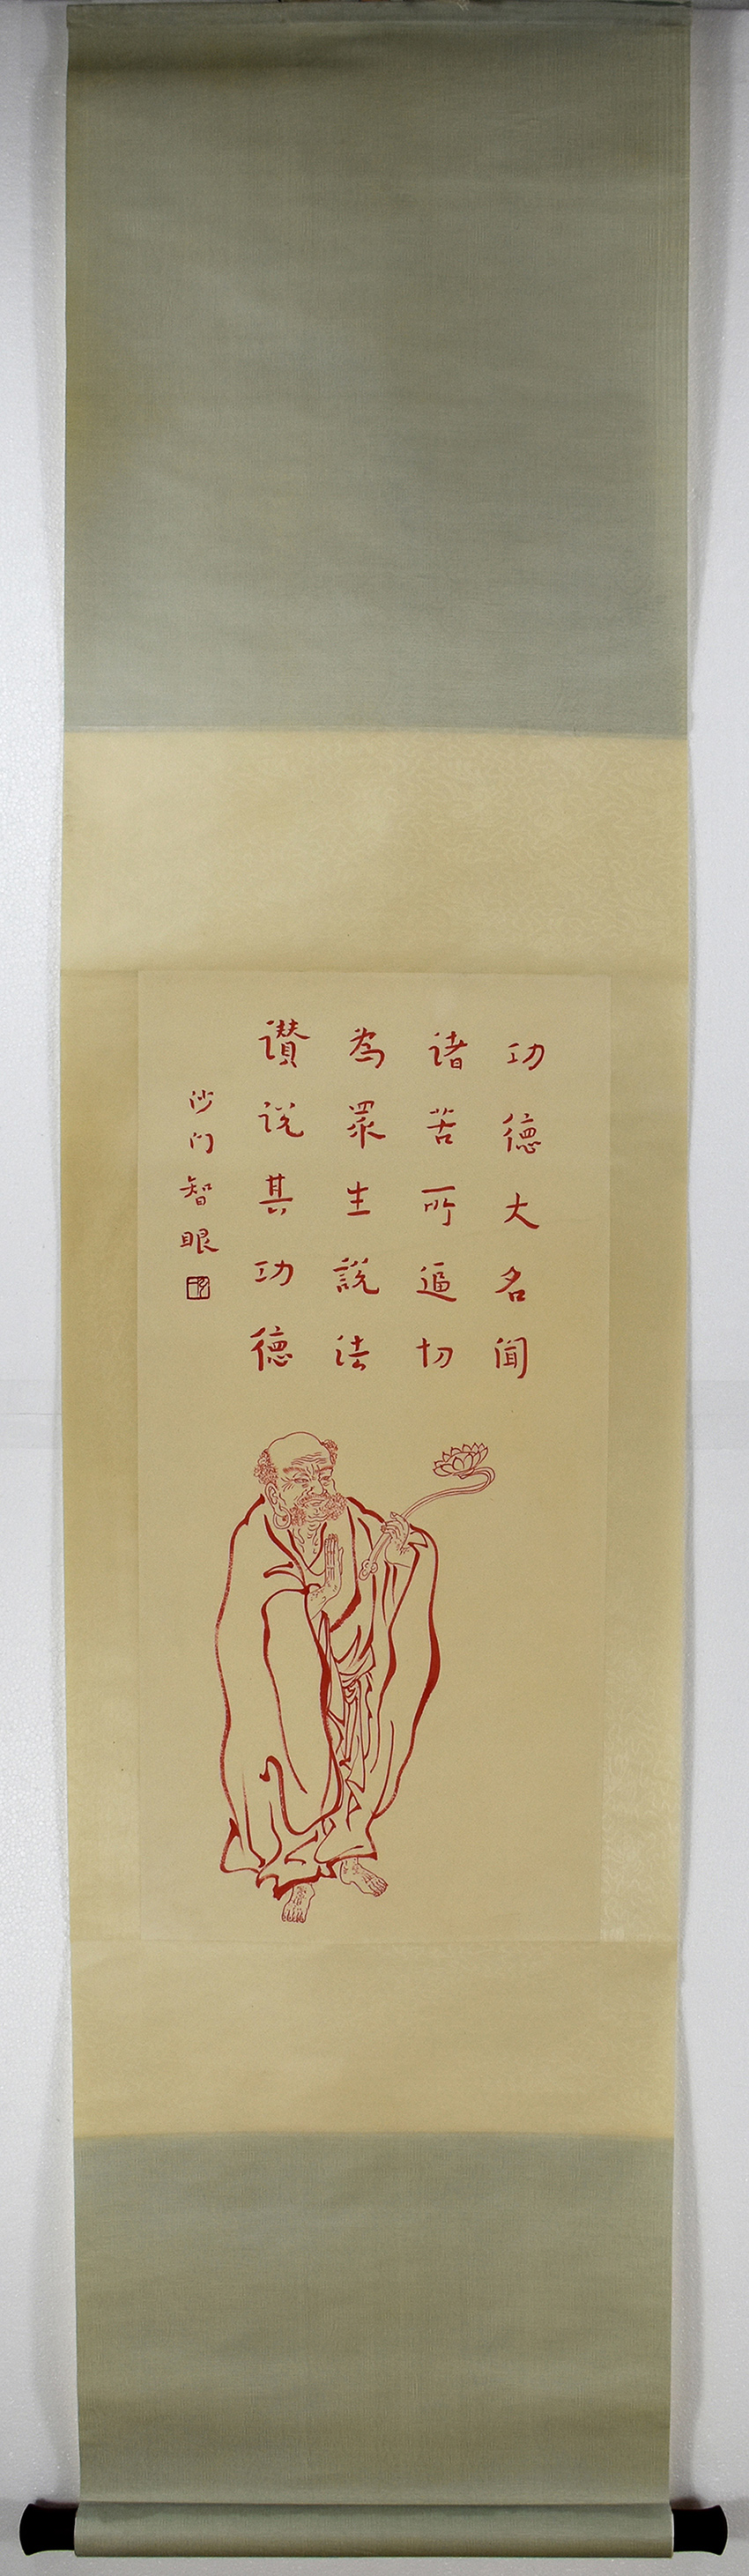 功德大名闻
诸苦所逼切
為眾生説法
讚说其功德
沙门智眼